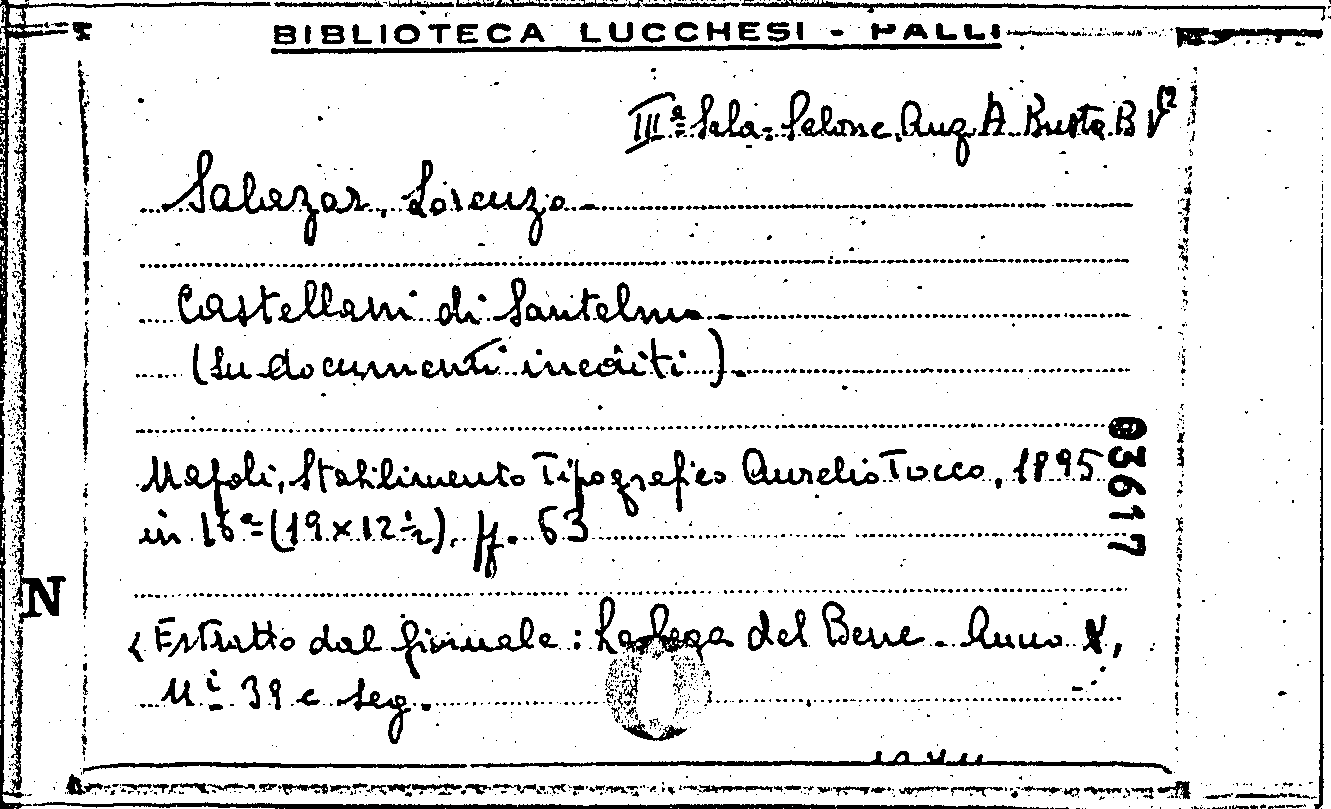 BIBLIOTECA LUCCHESI - PALLI
IIIª Sala: Salone Ang A Busta B V
Salazar, Lorenzo -
Castellani di Santelmo -
(Su documenti inediti).
Napoli, Stabilimento Tipografico Aurelio Tocco, 1895
in 16º (19 x 12 ½), pp. 63
03617
N
(Estratto dal giornale: La Lega del Bene - Anno X,
Nⁱ 39 e seg.